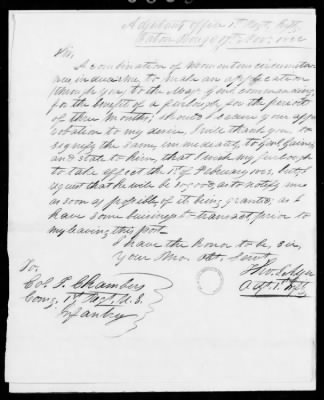 Adjutant's office 1st Regt. Inf.
Baton Rouge 27th Nov. 1822
Sir,
A combination of momentous circumstan-
ces induces me to make an application
(through you) to the Maj. Genl. commanding,
for the benefit of a furlough for the period
of three months; should I secure your appro
bation to my desire, I will thank you to
signify the same, immediately, to Genl. Gaines
and state to him, that I wish my furlough
to take effect the 1st of February next, but I
request that he will be so good as to notify me
as soon as possible of its being granted, as I
have some business to transact prior to
my leaving this post
I have the honor to be, Sir,
Your Mo. Obt. Servt.
To,
Col. T. Chambers
Comg. 1st Regt. U.S.
Infantry
Adjt. 1st Inf.